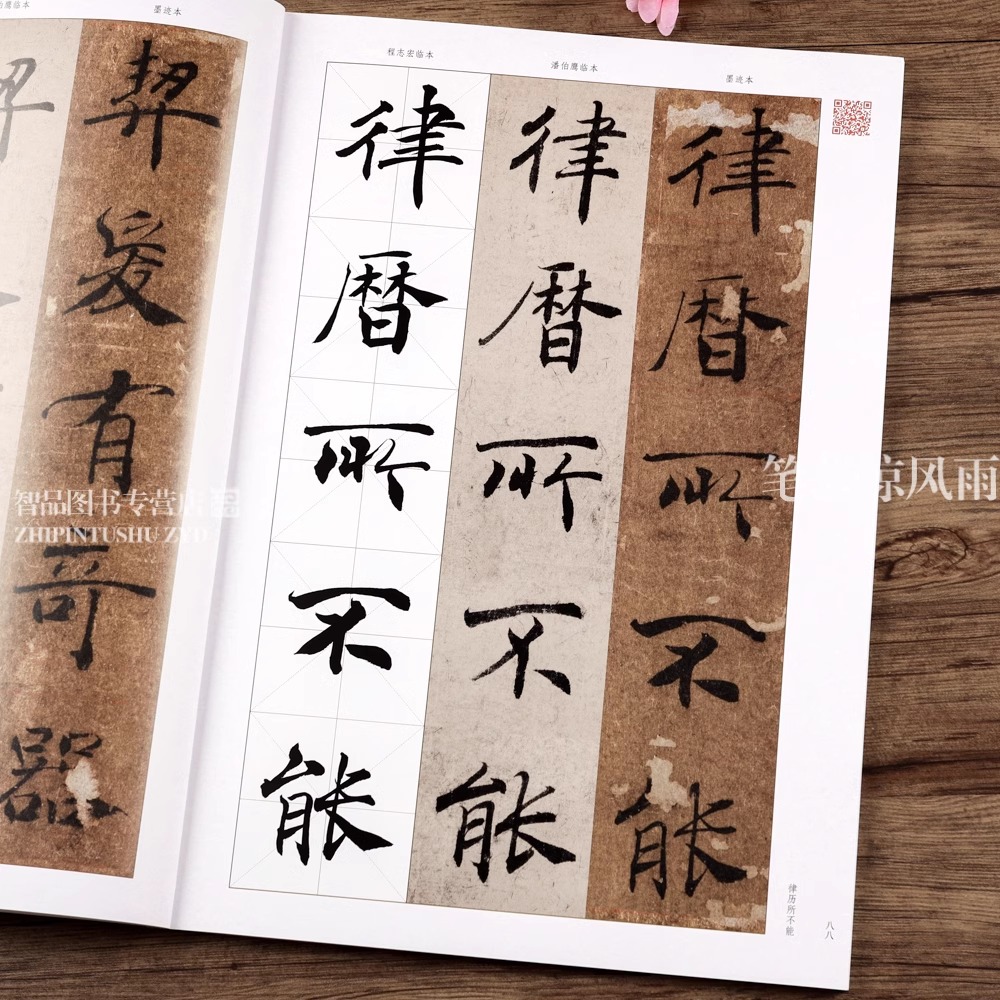 墨迹本
契爰有奇器
程志宏临本
潘怡鹰临本
墨迹本
律曆所不能
律曆所不能
律曆所不能
律历所不能
八八
智品图书专营店
ZHIPINTUSHU ZYD
风雨